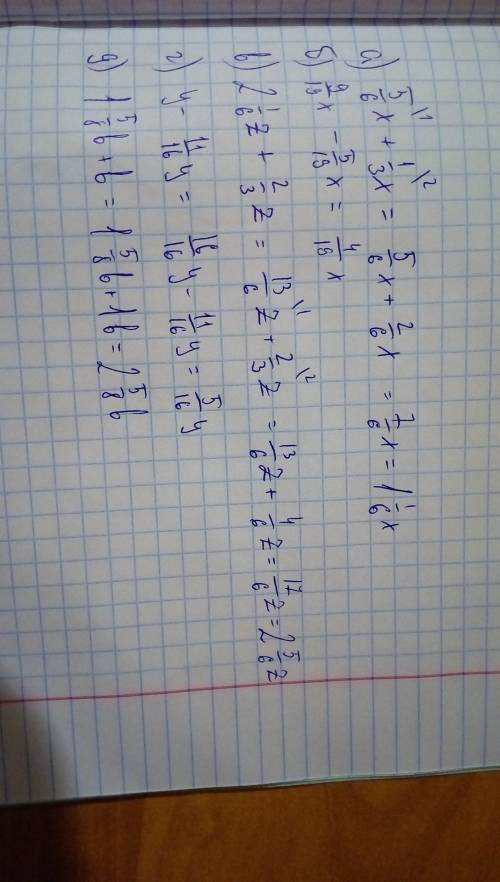 а) 5/6\1 x + 1/3\2 x = 5/6 x + 2/6 x = 7/6 x = 1 1/6 x
б) 9/19 x - 5/19 x = 4/19 x
в) 2 1/6 z + 2/3 z = 13/6\1 z + 2/3\2 z = 13/6 z + 4/6 z = 17/6 z = 2 5/6 z
г) y - 11/16 y = 16/16 y - 11/16 y = 5/16 y
д) 1 5/8 b + b = 1 5/8 b + 1b = 2 5/8 b